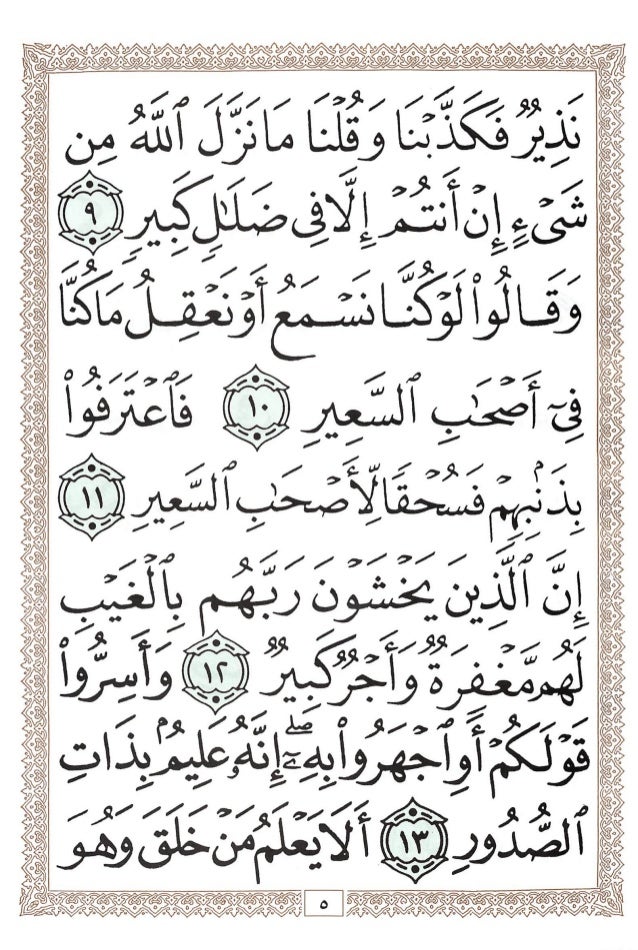 نَذِيرٌ فَكَذَّبْنَا وَقُلْنَا مَا نَزَّلَ ٱللَّهُ مِن
شَىْءٍ إِنْ أَنتُمْ إِلَّا فِى ضَلَٰلٍ كَبِيرٍ ٩
وَقَالُوا۟ لَوْ كُنَّا نَسْمَعُ أَوْ نَعْقِلُ مَا كُنَّا
فِىٓ أَصْحَٰبِ ٱلسَّعِيرِ ١٠ فَٱعْتَرَفُوا۟
بِذَنۢبِهِمْ فَسُحْقًا لِّأَصْحَٰبِ ٱلسَّعِيرِ ١١
إِنَّ ٱلَّذِينَ يَخْشَوْنَ رَبَّهُم بِٱلْغَيْبِ
لَهُم مَّغْفِرَةٌ وَأَجْرٌ كَبِيرٌ ١٢ وَأَسِرُّوا۟
قَوْلَكُمْ أَوِ ٱجْهَرُوا۟ بِهِۦٓ ۖ إِنَّهُۥ عَلِيمٌۢ بِذَاتِ
ٱلصُّدُورِ ١٣ أَلَا يَعْلَمُ مَنْ خَلَقَ وَهُوَ
٥